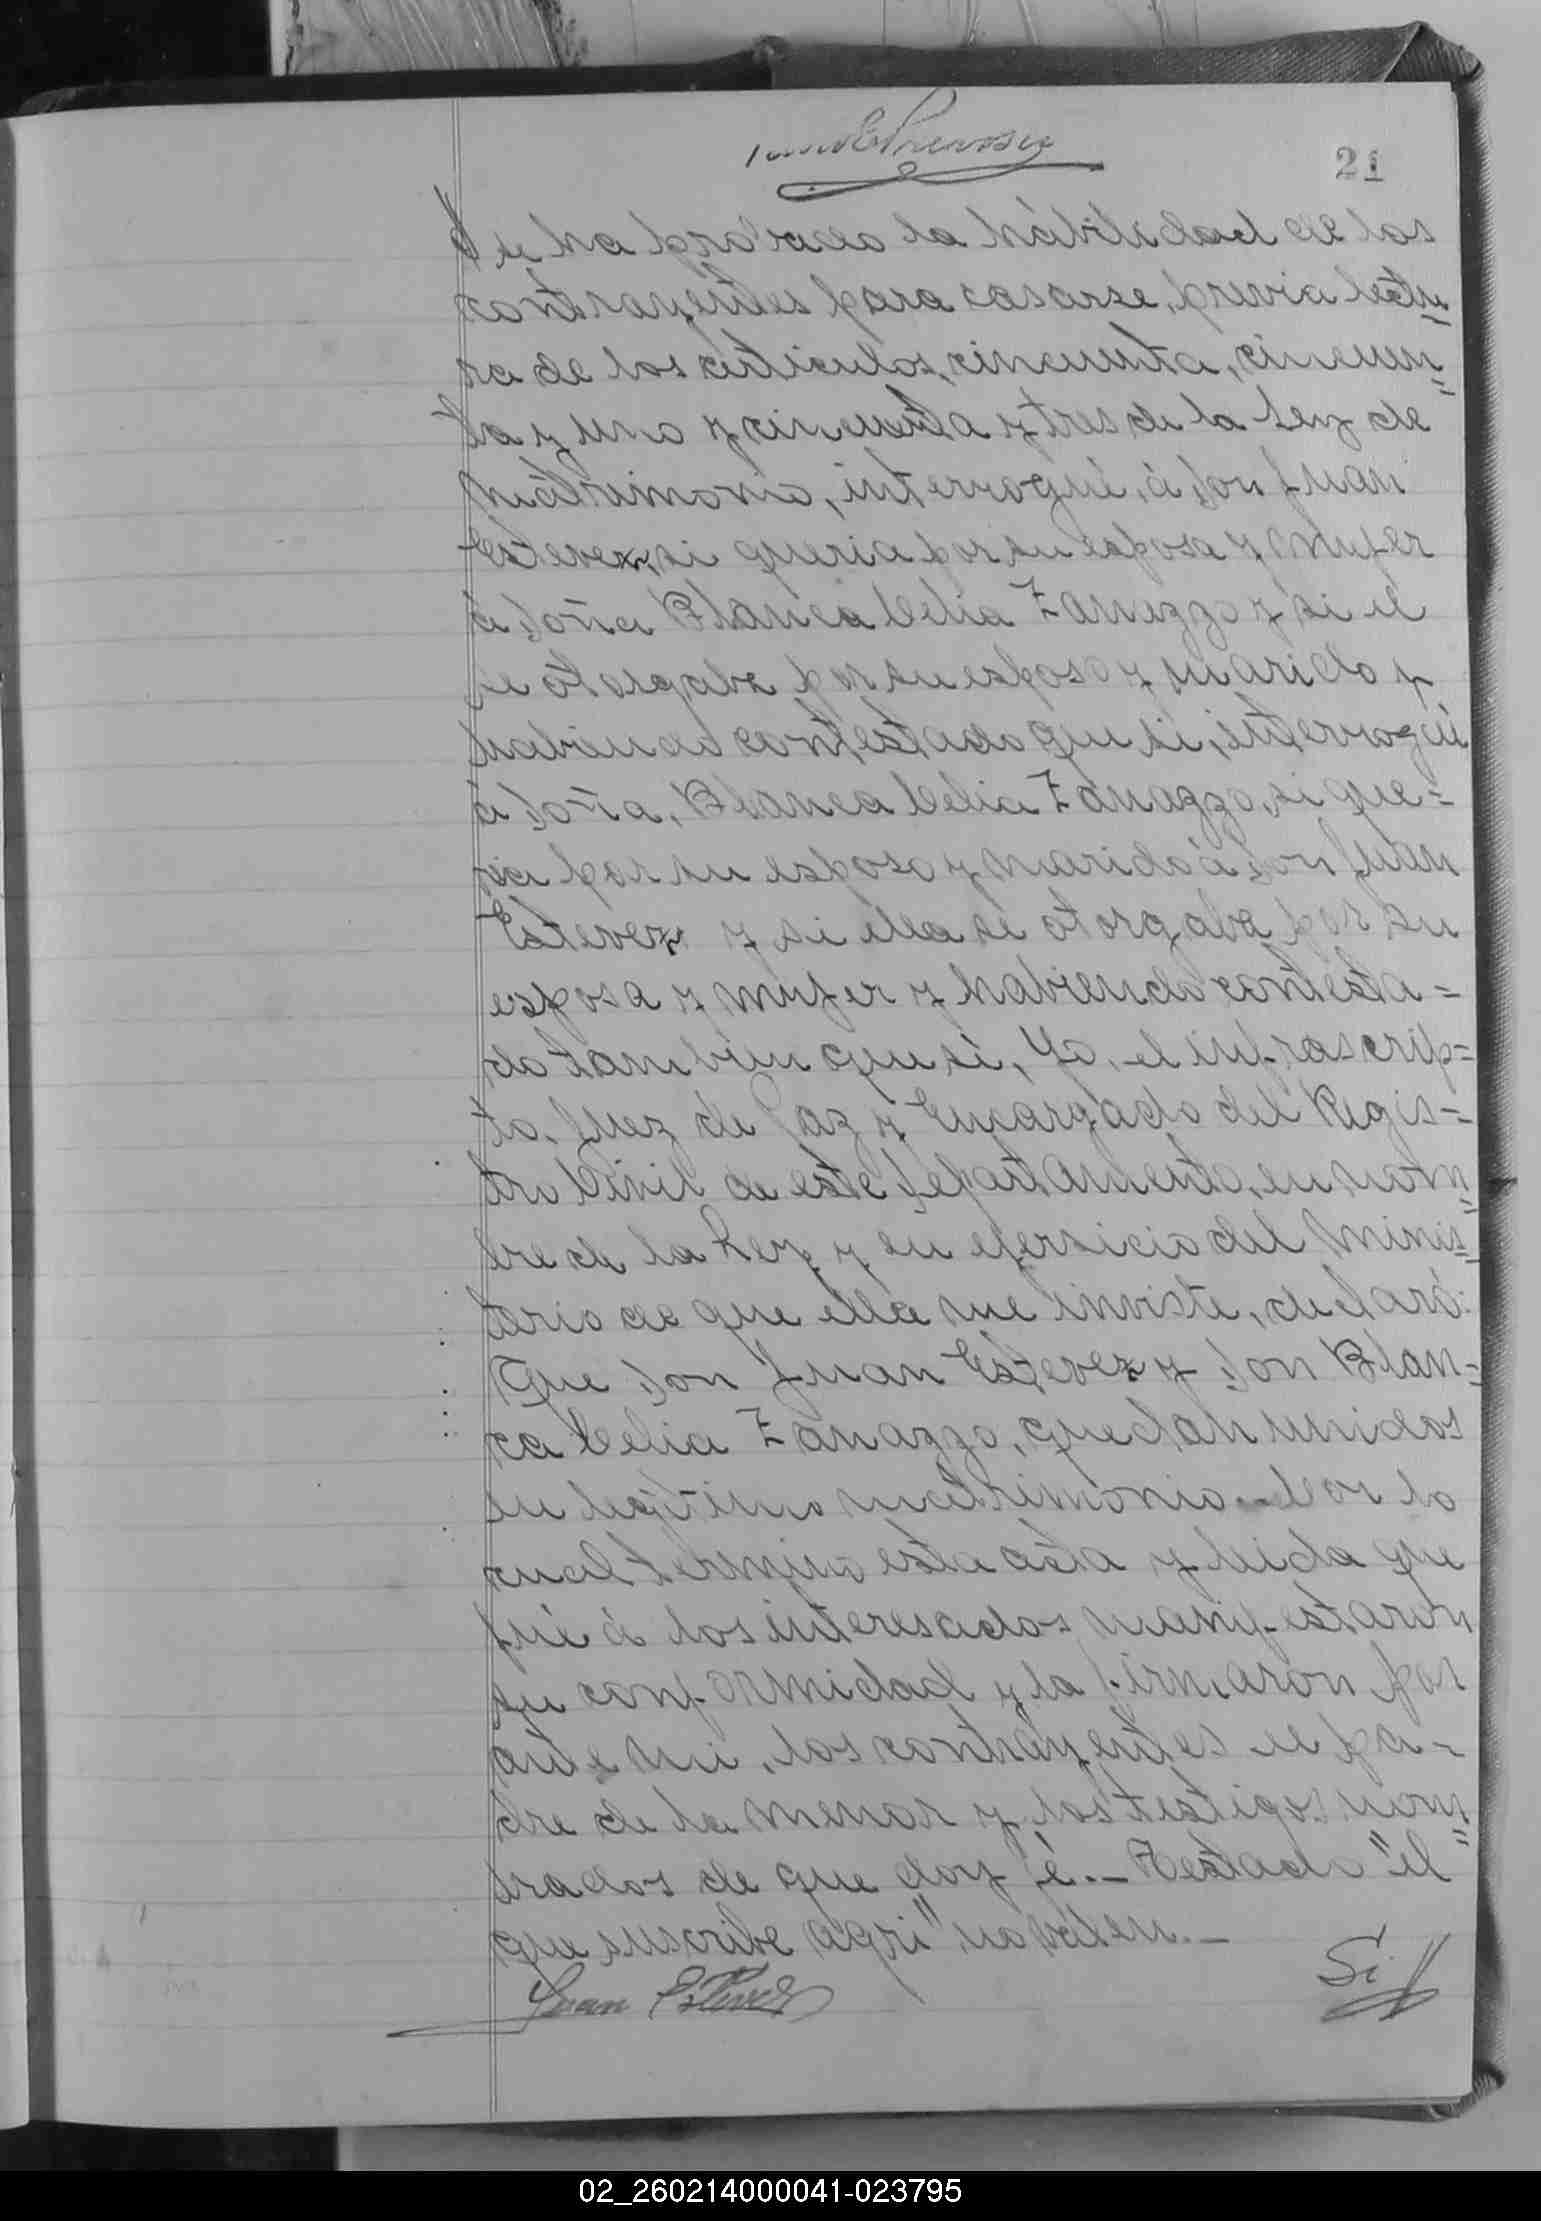 21
se ha probado la habilidad de los
contrayentes para casarse, previa lectu=
ra de los articulos, cincuenta, cincuen=
ta y uno y cincuenta y tres de la Ley de
Matrimonio, interrogué, á Don Juan
Estevez, si queria por su esposa y mujer
á Doña Blanca Celia Zanazzo y si el
se otorgaba por su esposo y marido y
habiendo contestado que si, interrogué
á Doña, Blanca Celia Zanazzo, si que=
ria por su esposo y marido á Don Juan
Estevez y si ella se otorgaba por su
esposa y mujer y habiendo contesta=
do tambien que si, Yo, el infrascrip=
to, Juez de Paz y Encargado del Regis=
tro Civil de este Departamento, en nom=
bre de la Ley y en ejersicio del Minis=
terio de que ella me inviste, declaró:
Que Don Juan Estevez y Don Blan=
ca Celia Zanazzo, quedan unidos
en legítimo matrimonio.- Con lo
cual termino esta acta y leida que
fué á los interesados manifestaron
su conformidad y la firmaron por
ante mi, los contrayentes el pa=
dre de la menor y los testigos nom=
brados de que doy fé.- Testado "el
que suscribe agri" no valen.-
Juan Estevez
Si
02_260214000041-023795